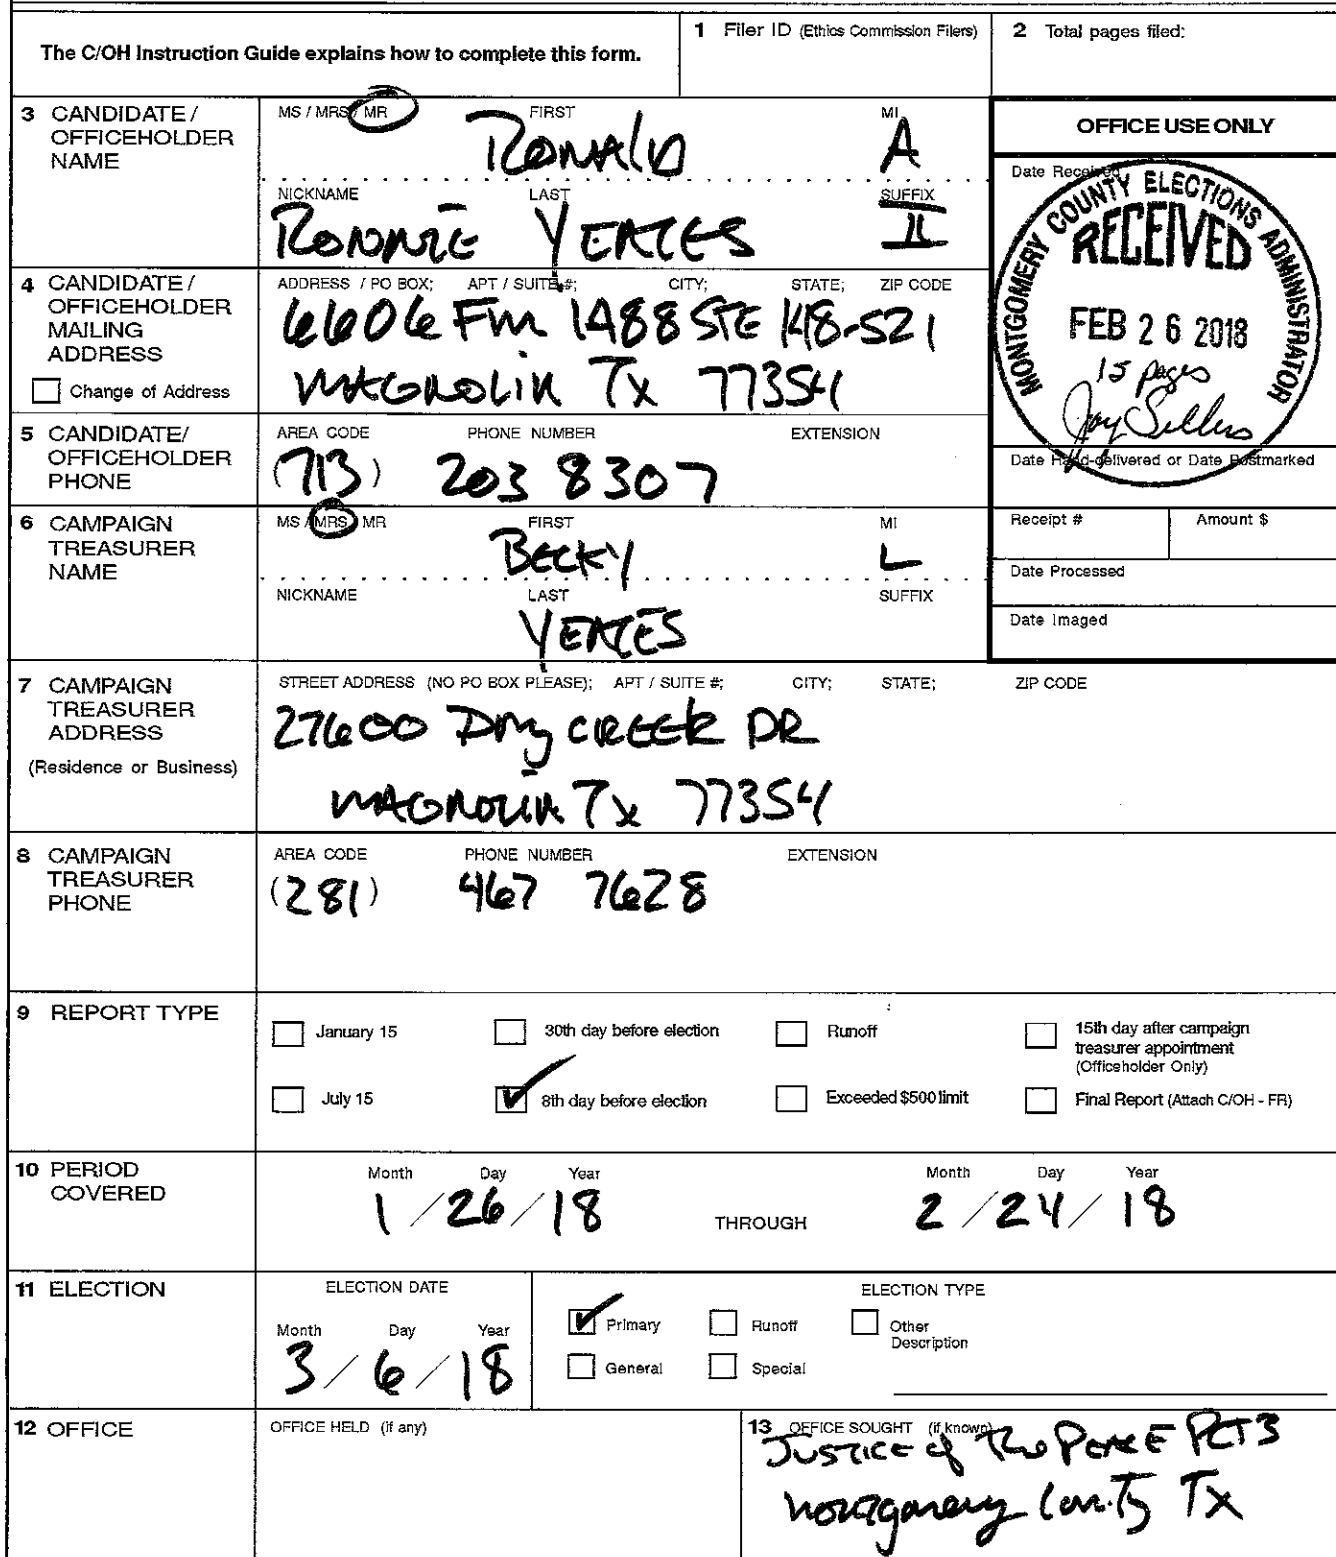 The C/OH Instruction Guide explains how to complete this form.
1 Filer ID (Ethics Commission Filers)
2 Total pages filed:
3 CANDIDATE / OFFICEHOLDER NAME
MS / MRS / MR FIRST MI
Ronald A
NICKNAME LAST SUFFIX
Ronnie Yeates II
OFFICE USE ONLY
Date Received
MONTGOMERY COUNTY ELECTIONS ADMINISTRATOR
RECEIVED
FEB 26 2018
15 pages
Jay Sellers
Date Hand-delivered or Date Postmarked
Receipt # Amount $
Date Processed
Date Imaged
4 CANDIDATE / OFFICEHOLDER MAILING ADDRESS
Change of Address
ADDRESS / PO BOX; APT / SUITE #; CITY; STATE; ZIP CODE
6606 FM 1488 STE 148-521
Magnolia Tx 77354
5 CANDIDATE/ OFFICEHOLDER PHONE
AREA CODE PHONE NUMBER EXTENSION
(713) 203 8307
6 CAMPAIGN TREASURER NAME
MS / MRS / MR FIRST MI
Becky L
NICKNAME LAST SUFFIX
Yeates
7 CAMPAIGN TREASURER ADDRESS
(Residence or Business)
STREET ADDRESS (NO PO BOX PLEASE); APT / SUITE #; CITY; STATE; ZIP CODE
27600 Dry Creek DR
Magnolia Tx 77354
8 CAMPAIGN TREASURER PHONE
AREA CODE PHONE NUMBER EXTENSION
(281) 467 7628
9 REPORT TYPE
January 15
30th day before election
Runoff
15th day after campaign treasurer appointment (Officeholder Only)
July 15
8th day before election
Exceeded $500 limit
Final Report (Attach C/OH - FR)
10 PERIOD COVERED
Month Day Year Month Day Year
1 / 26 / 18 THROUGH 2 / 24 / 18
11 ELECTION
ELECTION DATE
Month Day Year
3 / 6 / 18
ELECTION TYPE
Primary Runoff Other Description
General Special
12 OFFICE
OFFICE HELD (if any)
13 OFFICE SOUGHT (if known)
Justice of The Peace PCT 3
Montgomery County Tx